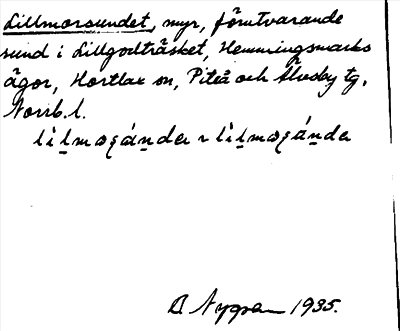 Lillmorsundet, myr, förutvarande
sund i Lillgodträsket, Hemmingsmarks
ägor, Hortlax sn, Piteå och Älvsby tg,
Norrb. l.
B. Nygren 1935.